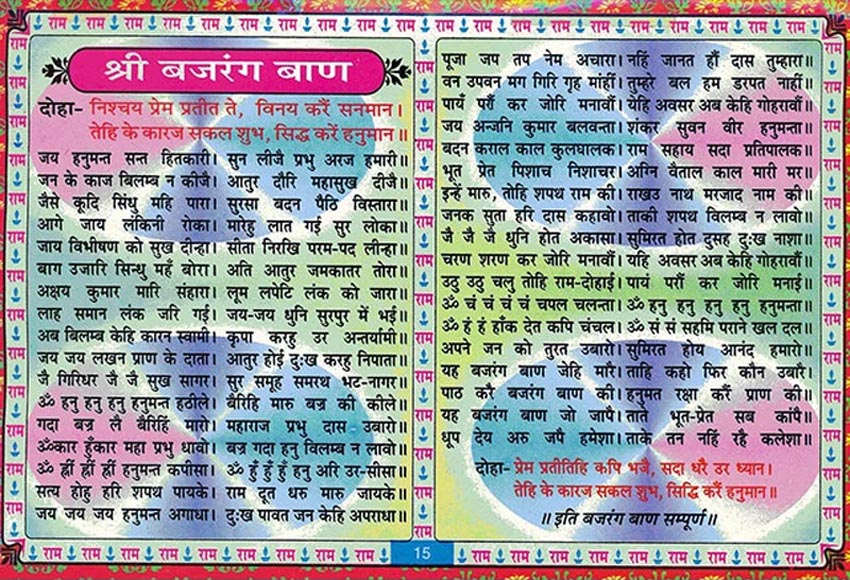 श्री बजरंग बाण
दोहा- निश्चय प्रेम प्रतीत ते, विनय करैं सनमान।
तेहि के कारज सकल शुभ, सिद्ध करें हनुमान॥
जय हनुमन्त सन्त हितकारी। सुन लीजै प्रभु अरज हमारी॥
जन के काज बिलम्ब न कीजै। आतुर दौरि महासुख दीजै॥
जैसे कूदि सिंधु महि पारा। सुरसा बदन पैठि विस्तारा॥
आगे जाय लंकिनी रोका। मारेहु लात गई सुर लोका॥
जाय विभीषण को सुख दीन्हा। सीता निरखि परम-पद लीन्हा॥
बाग उजारि सिन्धु महँ बोरा। अति आतुर जमकातर तोरा॥
अक्षय कुमार मारि संहारा। लूम लपेटि लंक को जारा॥
लाह समान लंक जरि गई। जय-जय धुनि सुरपुर में भई॥
अब बिलम्ब केहि कारन स्वामी। कृपा करहु उर अन्तर्यामी॥
जय जय लखन प्राण के दाता। आतुर होई दुःख करहु निपाता॥
जै गिरिधर जै जै सुख सागर। सुर समूह समरथ भट-नागर॥
ॐ हनु हनु हनु हनुमन्त हठीले। बैरिहि मारु बज्र की कीले॥
गदा बज्र लै बैरिहिं मारो। महाराज प्रभु दास उबारो॥
ॐकार हुँकार महा प्रभु धावो। बज्र गदा हनु विलम्ब न लावो॥
ॐ ह्नीं ह्नीं ह्नीं हनुमन्त कपीसा। ॐ हुँ हुँ हुँ हनु अरि उर-सीसा॥
सत्य होहु हरि शपथ पायके। राम दूत धरु मारु जायके॥
जय जय जय हनुमन्त अगाधा। दुःख पावत जन केहि अपराधा॥
पूजा जप तप नेम अचारा। नहिं जानत हौं दास तुम्हारा॥
वन उपवन मग गिरि गृह मांहीं। तुम्हरे बल हम डरपत नाहीं॥
पायं परौं कर जोरि मनावौं। येहि अवसर अब केहि गोहरावौं॥
जय अन्जनि कुमार बलवन्ता। शंकर सुवन वीर हनुमन्ता॥
बदन कराल काल कुलघालक। राम सहाय सदा प्रतिपालक॥
भूत प्रेत पिशाच निशाचर। अग्नि वैताल काल मारी मर॥
इन्हें मारु, तोहि शपथ राम की। राखउ नाथ मरजाद नाम की॥
जनक सुता हरि दास कहावो। ताकी शपथ विलम्ब न लावो॥
जै जै जै धुनि होत अकासा। सुमिरत होत दुसह दुःख नाशा॥
चरण शरण कर जोरि मनावौं। यहि अवसर अब केहि गोहरावौं॥
उठु उठु चलु तोहि राम-दोहाई। पायं परौं कर जोरि मनाई॥
ॐ चं चं चं चं चपल चलन्ता। ॐ हनु हनु हनु हनु हनुमन्ता॥
ॐ हं हं हाँक देत कपि चंचल। ॐ सं सं सहमि पराने खल दल॥
अपने जन को तुरत उबारो। सुमिरत होय आनंद हमारो॥
यह बजरंग बाण जेहि मारै। ताहि कहो फिर कौन उबारै॥
पाठ करै बजरंग बाण की। हनुमत रक्षा करैं प्राण की॥
यह बजरंग बाण जो जापै। ताते भूत-प्रेत सब कांपै॥
धूप देय अरु जपै हमेशा। ताके तन नहिं रहै कलेशा॥
दोहा- प्रेम प्रतीतिहि कपि भजै, सदा धरै उर ध्यान।
तेहि के कारज सकल शुभ, सिद्धि करैं हनुमान॥
॥ इति बजरंग बाण सम्पूर्ण॥
15